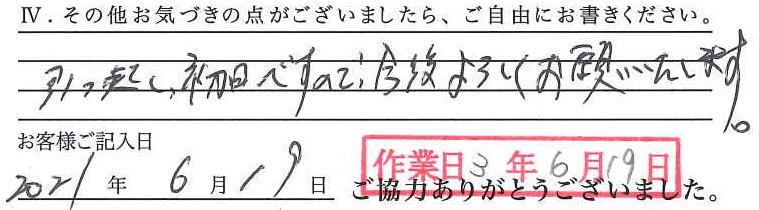 Ⅳ．その他お気づきの点がございましたら、ご自由にお書きください。
引っ越し、初日ですので、今後よろしくお願いいたします。
お客様ご記入日
2021年 6月 19日
作業日 3年 6月 19日
ご協力ありがとうございました。